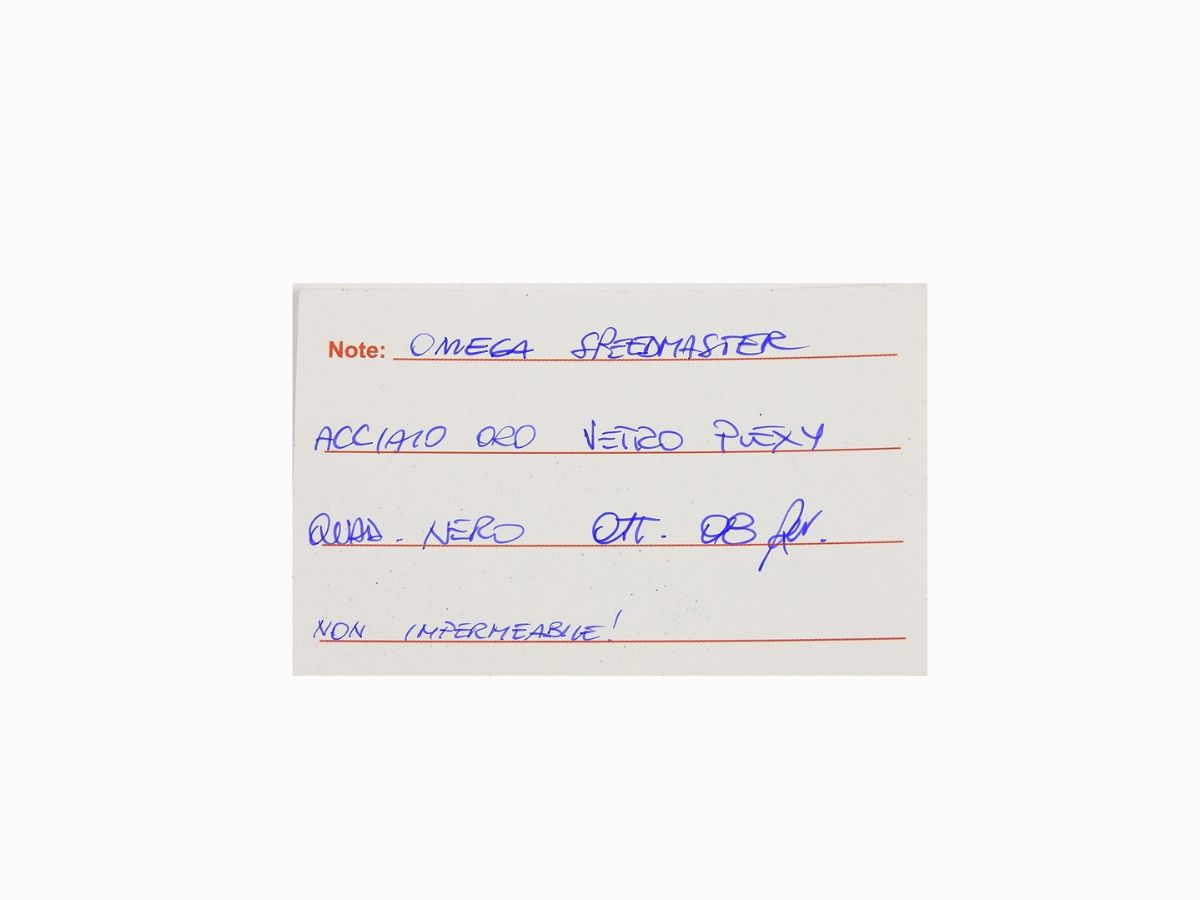 Note: OMEGA SPEEDMASTER
ACCIAIO ORO VETRO PLEXY
QUAD. NERO OTT. 08
NON IMPERMEABILE!